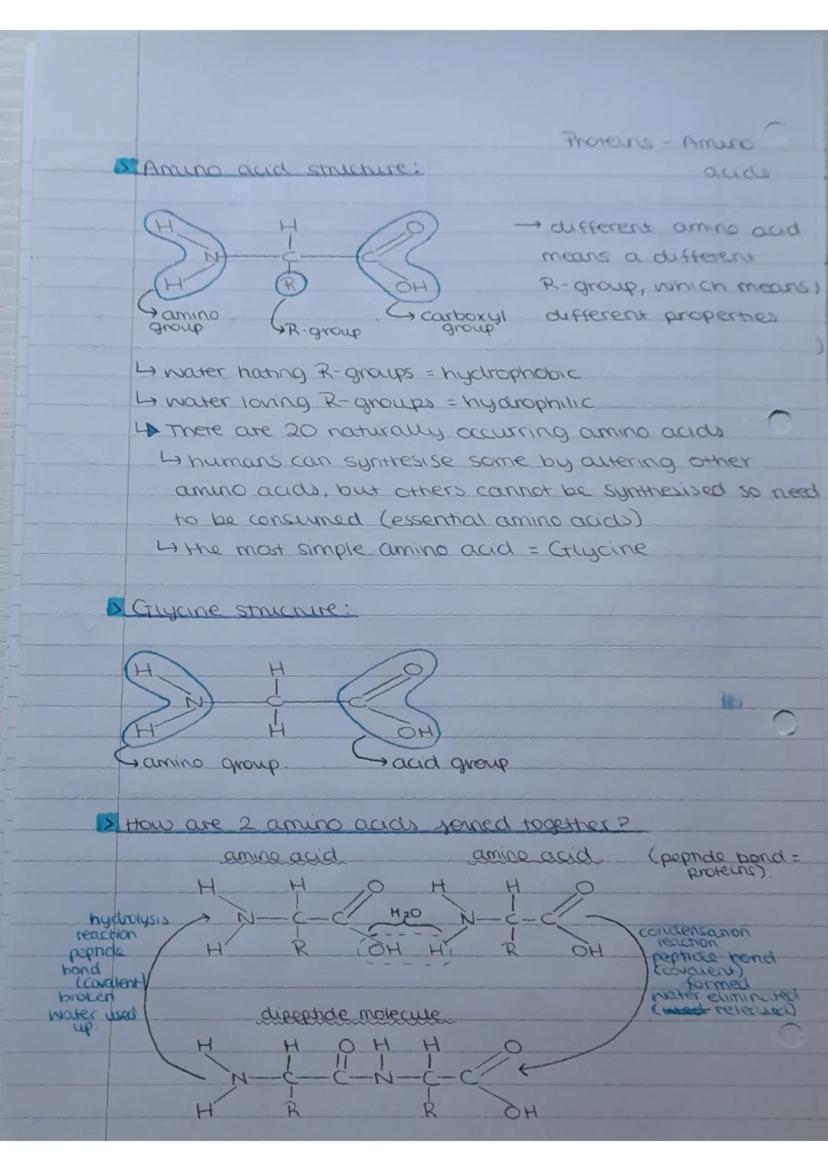 Proteins - Amino
acids
> Amino acid structure:
H H O
N C C
H R OH
→ different amino acid
means a different
R-group, which means
different properties
↳ amino
group
↳ R-group
↳ carboxyl
group
↳ water hating R-groups = hydrophobic
↳ water loving R-groups = hydrophilic
↳ There are 20 naturally occurring amino acids
↳ humans can synthesise some by altering other
amino acids, but others cannot be synthesised so need
to be consumed (essential amino acids)
↳ the most simple amino acid = Glycine
> Glycine structure:
H H O
N C C
H H OH
↳ amino group
↳ acid group
> How are 2 amino acids joined together?
amine acid
amine acid
(peptide bond =
proteins).
H H O H H O
N—C—C H2O N—C—C
H R OH H R OH
hydrolysis
reaction
peptide
bond
(covalent)
broken
water used
up
condensation
reaction
peptide bond
(covalent)
formed
water eliminated
(released)
dipeptide molecule
H H O H H O
N—C—C—N—C—C
H R R OH